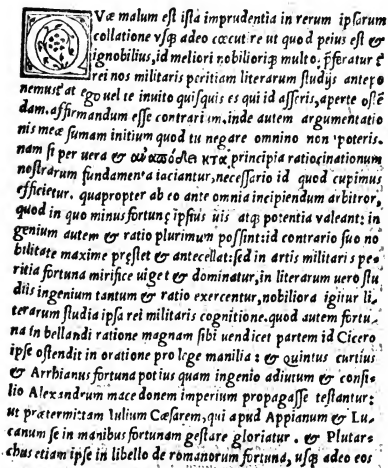 QVæ malum est ista imprudentia in rerum ipsarum
collatione vsq; adeo cœcutire ut quod peius est &
ignobilius, id meliori nobilioriq; multo p̃feratur ξ
rei nos militaris peritiam literarum studijs antepo
nemus: at ego uel te inuito quisquis es qui id asseris, aperte oſtẽ
dam. affirmandum esse contrarium. inde autem argumentatio
nis meæ sumam initium quod tu negare omnino non poteris.
nam si per uera & principia ratiocinationum
nostrarum fundamenta iaciantur, necessario id quod cupimus
efficietur. quapropter ab eo ante omnia incipiendum arbitror,
quod in quo minus fortunę ipsius uis atq; potentia valeant: in
genium autem & ratio plurimum possint: id contrario suo no
bilitate maxime pręstet & antecellat: sed in artis militaris pe
ritia fortuna mirifice uiget & dominatur, in literarum uero stu
diis ingenium tantum & ratio exercentur, nobiliora igitur li
terarum studia ipsa rei militaris cognitione. quod autem fortu
na in bellandi ratione magnam sibi uendicet partem id Cicero
ipse ostendit in oratione pro lege manilia: & quintus curtius
& Arrhianus fortuna potius quam ingenio adiutum & consi
lio Alexandrum macedonem imperium propagasse testantur:
ut prætermittam Iulium Cæsarem, qui apud Appianum & Lu
canum se in manibus fortunam gestare gloriatur. & Plutar
chus etiam ipse in libello de romanorum fortuna, usq; adeo eos